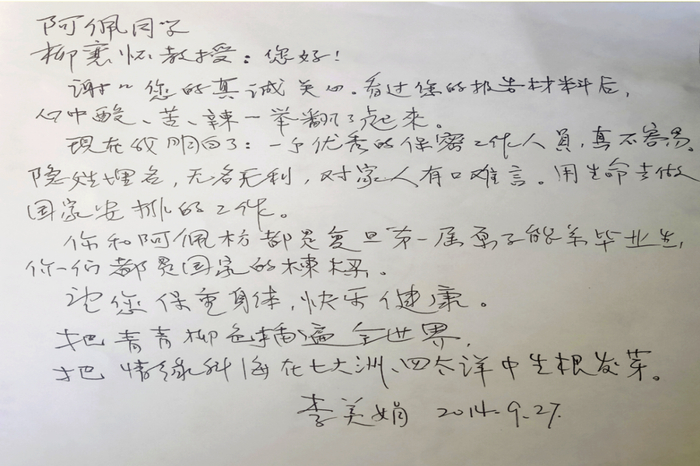 阿佩同学
柳襄怀教授:您好!
谢〃您的真诚关心。看过您的报告材料后,
心中酸、苦、辣一举翻了起来。
现在我明白了:一个优秀的保密工作人員,真不容易。
隐姓埋名,无名无利,对家人有口难言。用生命去做
国家安排的工作。
你和阿佩棣都是复旦第一届原子能系毕业生,
你们都是国家的栋樑。
望您保重身体,快乐健康。
把青青柳色播遍全世界,
把情缘科海在七大洲、四大洋中生根发芽。
李美娟 2014.9.27.